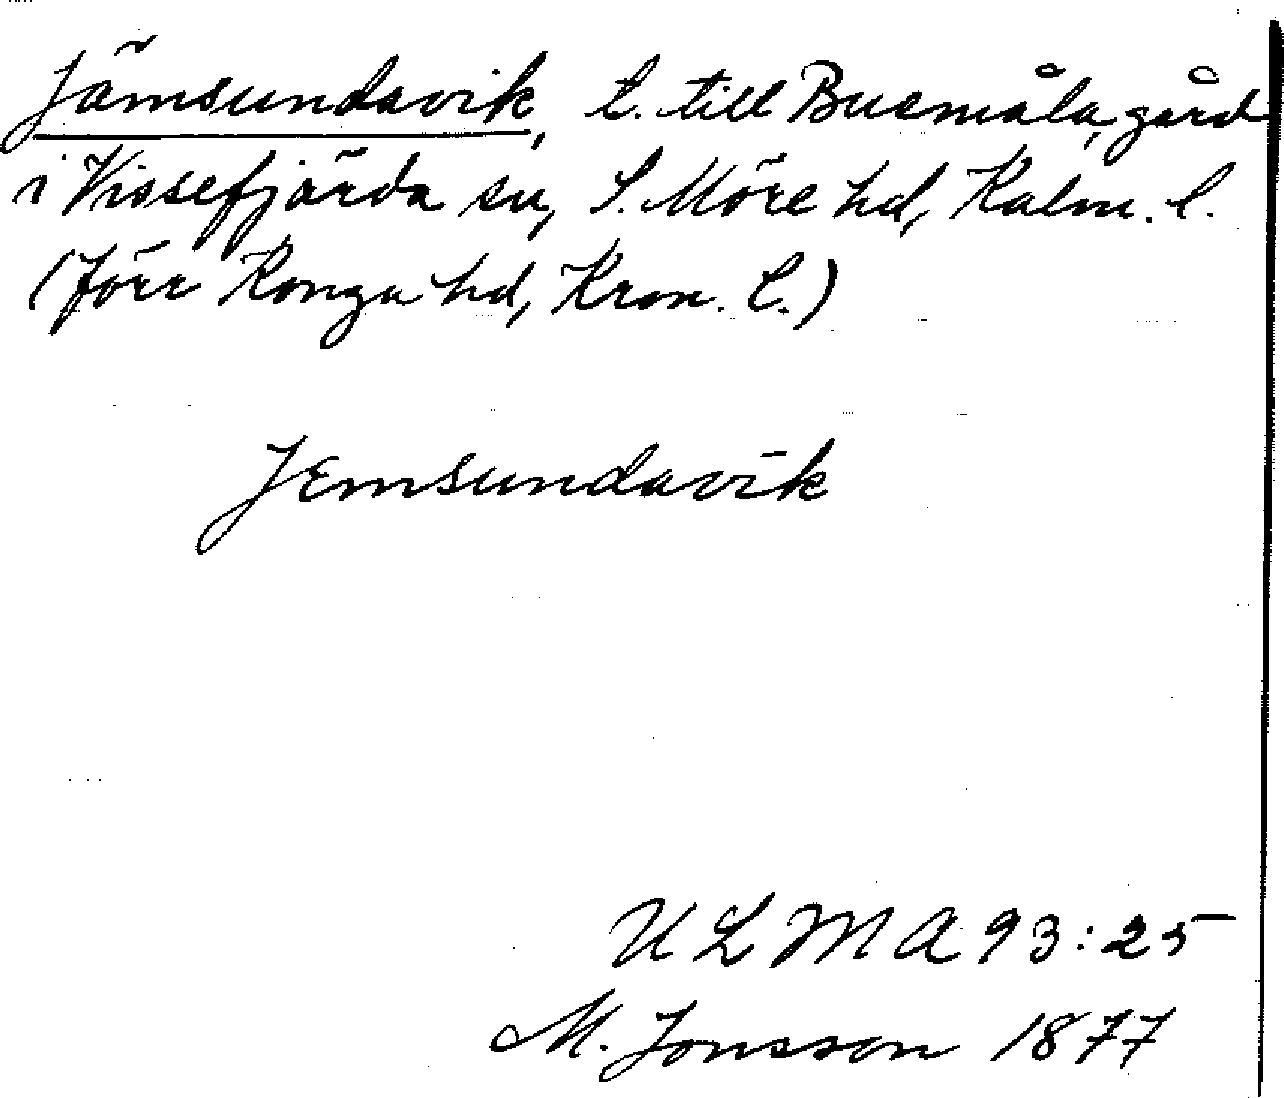 Jämsundavik, t. till Buemåla, gård
i Vissefjärda sn, S. Möre hd, Kalm. l.
(förr Konga hd, Kron. l.)
Jemsundavik
ULMA 93:25
M. Jonsson 1877